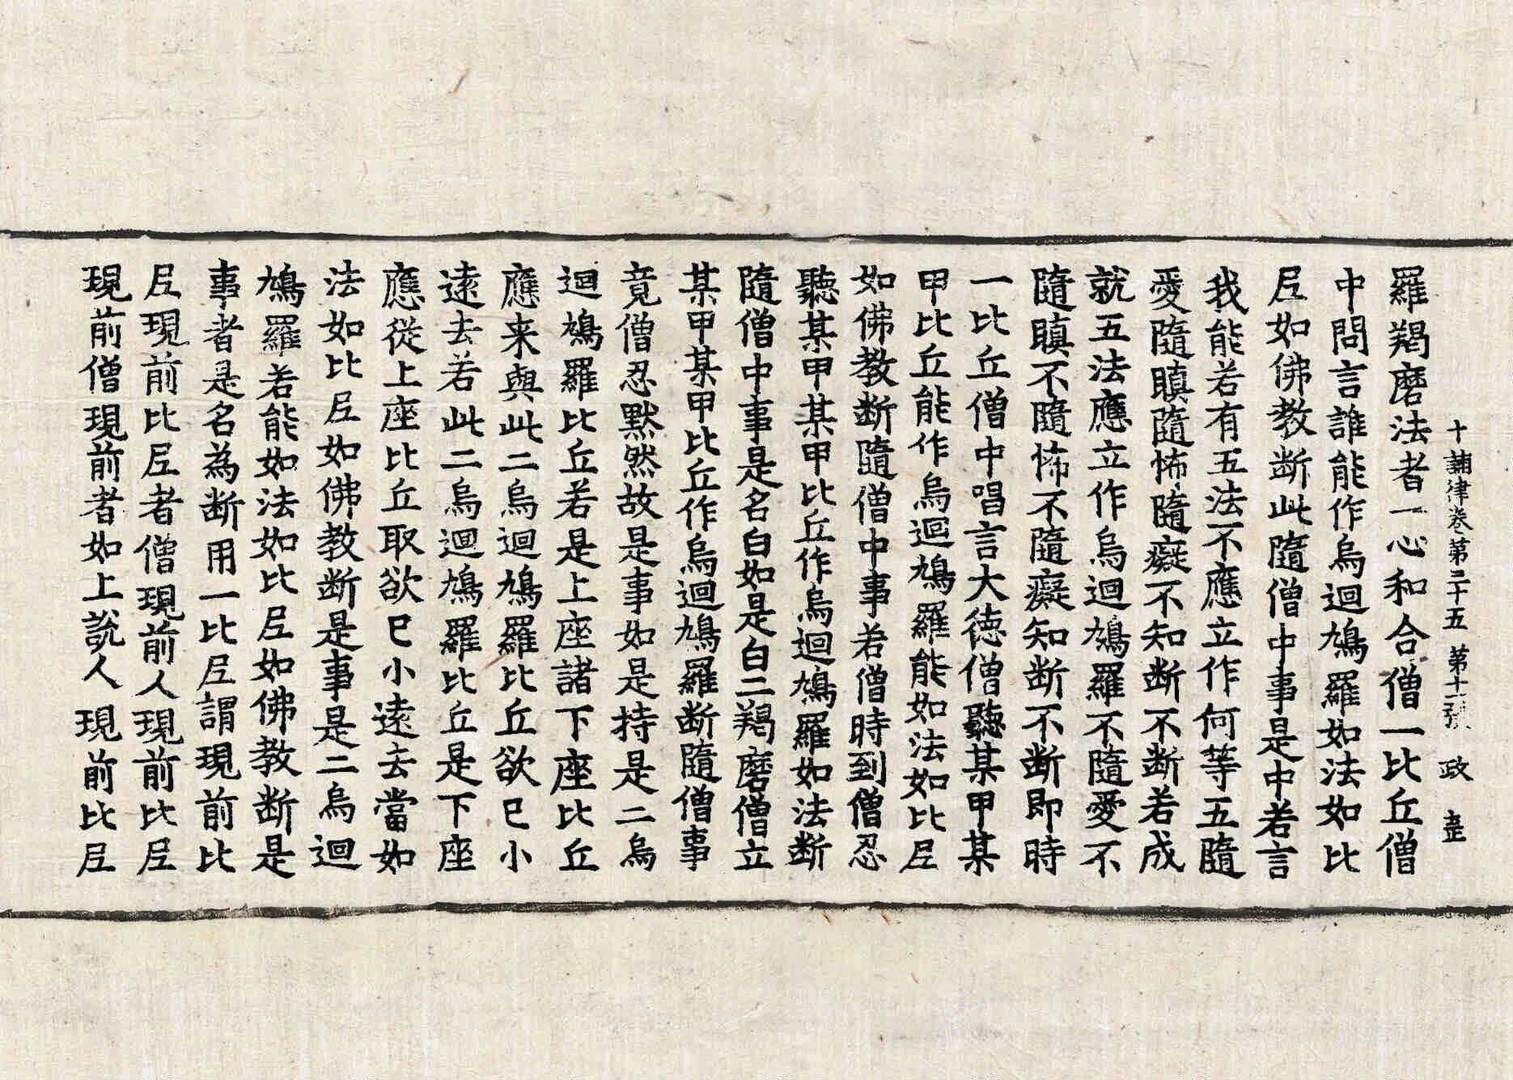 十誦律卷第三十五 第十張 政
羅羯磨法者一心和合僧一比丘僧
中問言誰能作烏迴鳩羅如法如比
尼如佛教断此隨僧中事是中若言
我能若有五法不應立作何等五隨
愛隨瞋隨怖隨癡不知断不断若成
就五法應立作烏迴鳩羅不隨愛不
隨瞋不隨怖不隨癡知断不断即時
一比丘僧中唱言大德僧聽某甲某
甲比丘能作烏迴鳩羅能如法如比尼
如佛教断隨僧中事若僧時到僧忍
聽某甲某甲比丘作烏迴鳩羅如法断
隨僧中事是名白如是白二羯磨僧立
某甲某甲比丘作烏迴鳩羅断隨僧事
竟僧忍默然故是事如是持是二烏
迴鳩羅比丘若是上座諸下座比丘
應来與此二烏迴鳩羅比丘欲已小
遠去若此二烏迴鳩羅比丘是下座
應從上座比丘取欲已小遠去當如
法如比尼如佛教断是事是二烏迴
鳩羅若能如法如比尼如佛教断是
事者是名為断用一比尼謂現前比
尼現前比尼者僧現前人現前比尼
現前僧現前者如上說人現前比尼